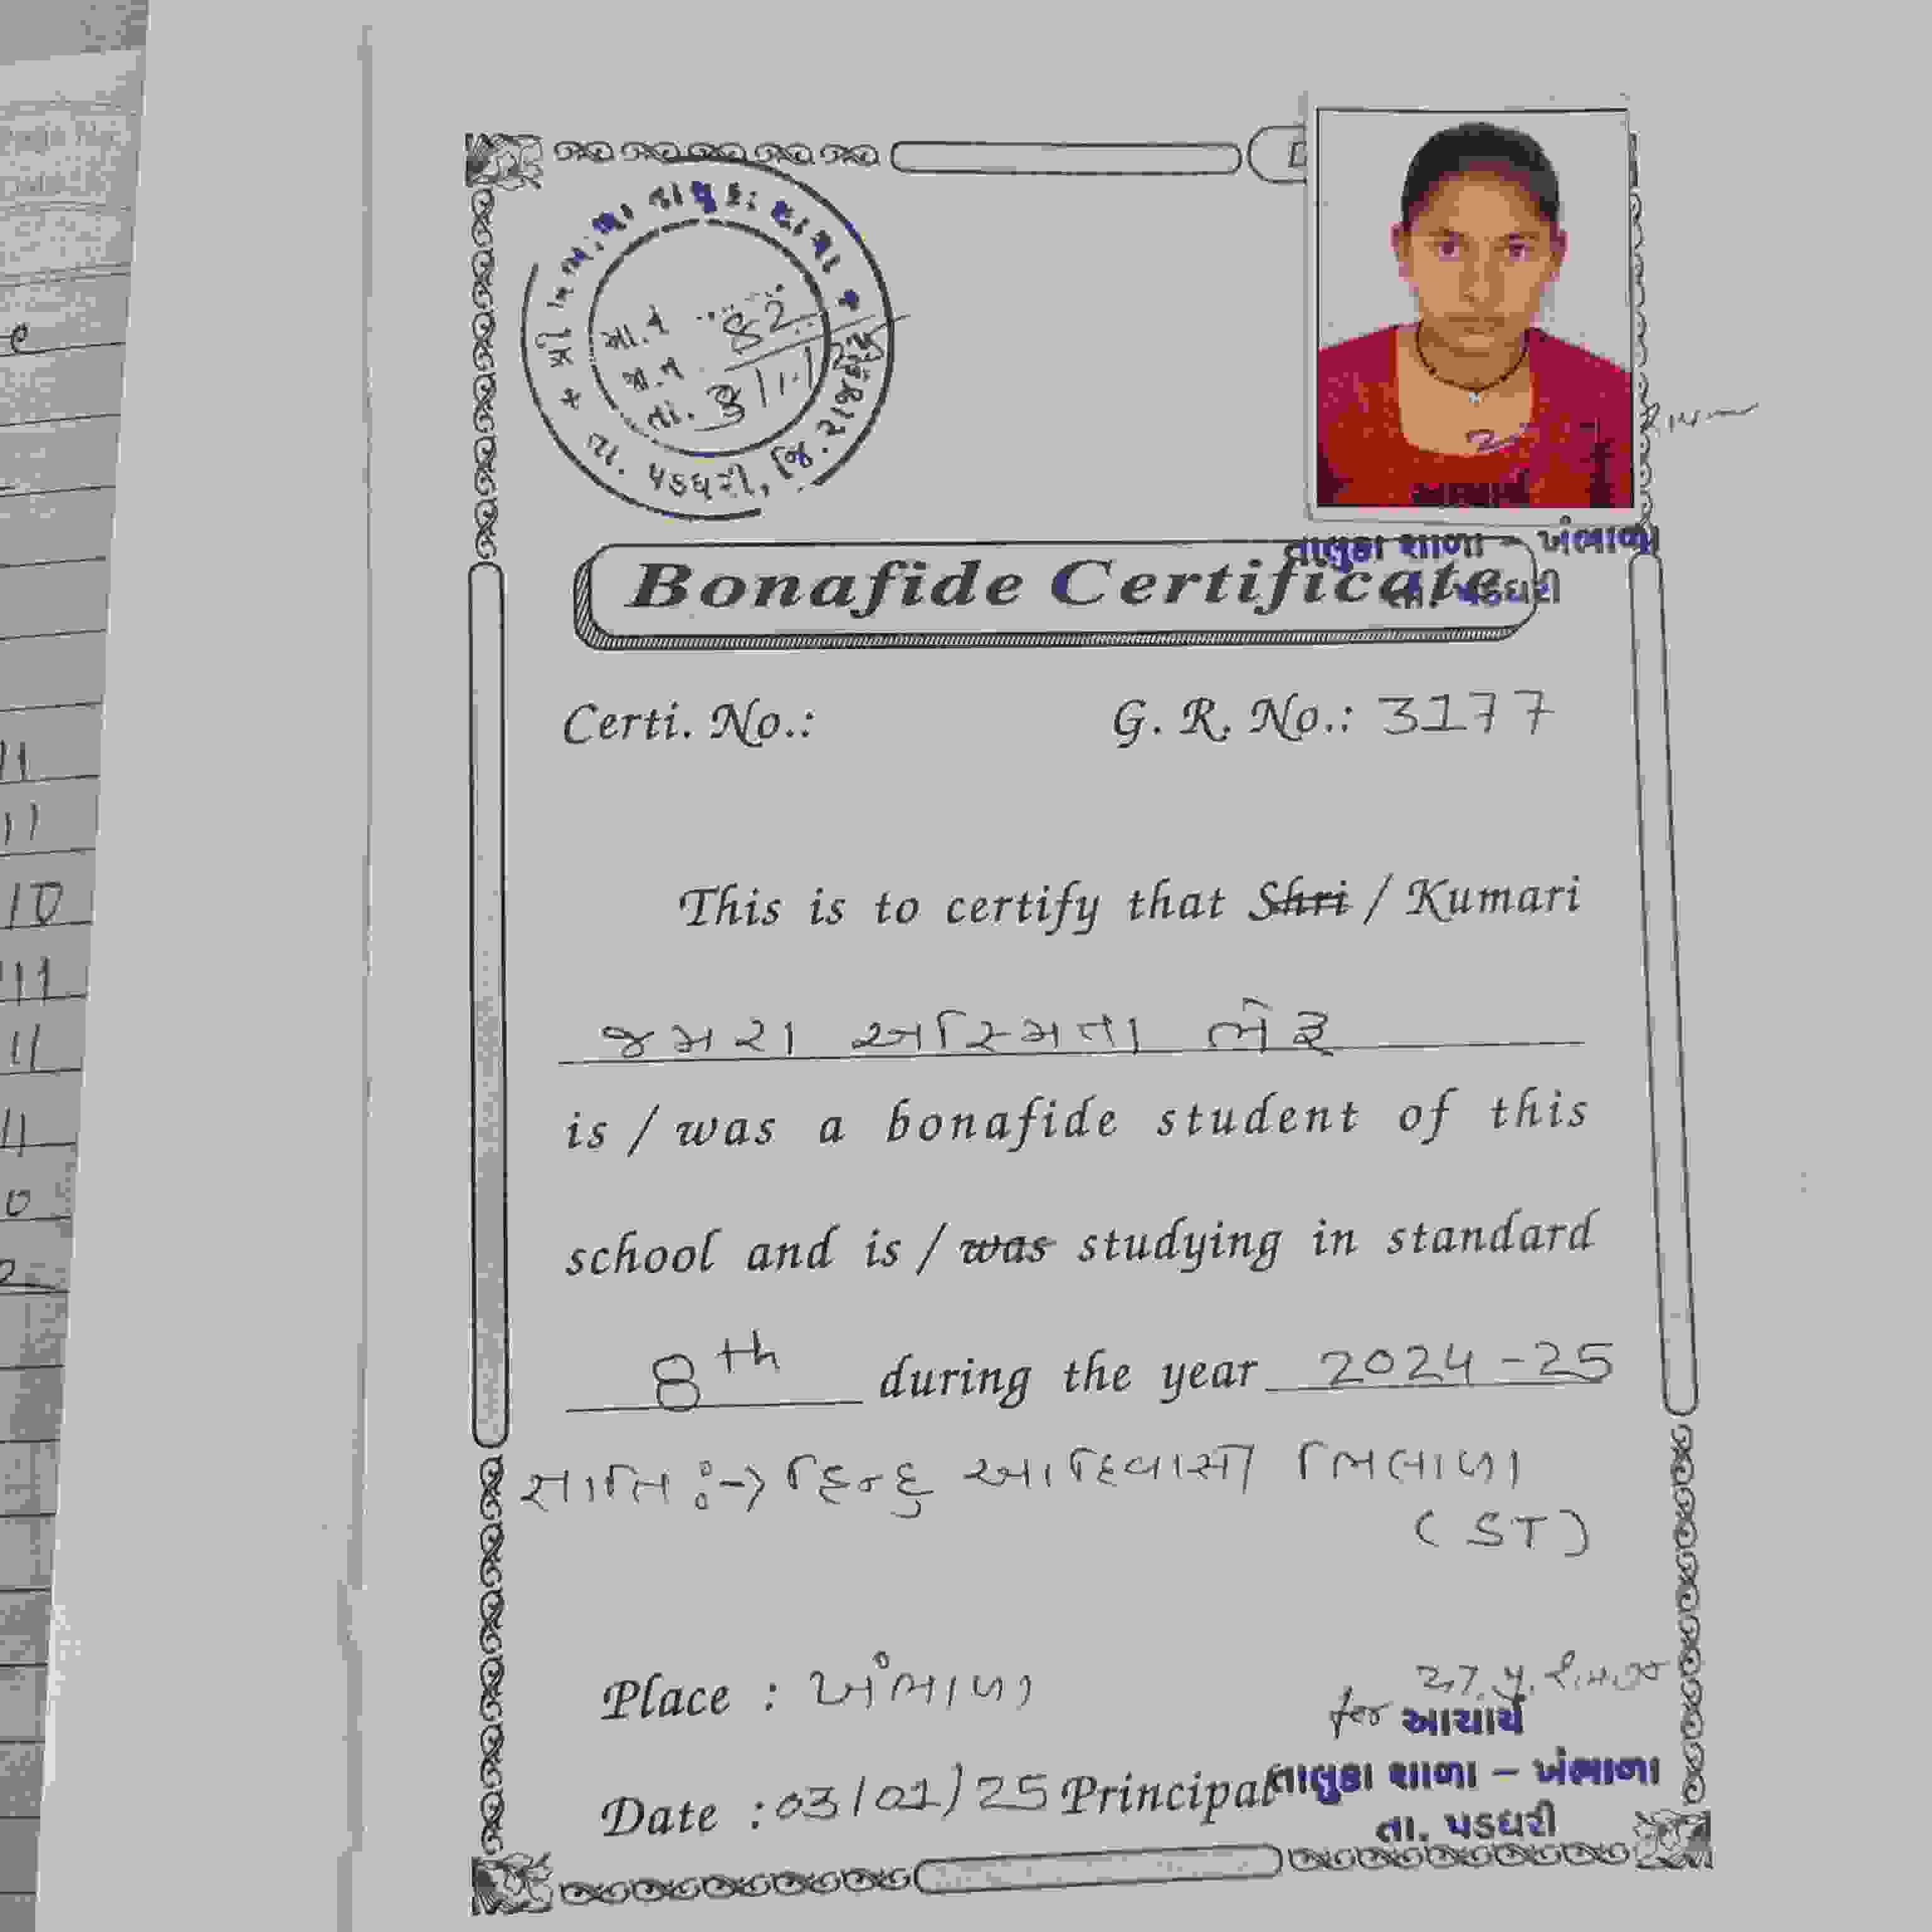 શ્રી ખંભાળા તાલુકા શાળા
મા.નં
જા.નં 82
તા. 3/1/
તા. પડધરી, જિ. રાજકોટ
તાલુકા શાળા - ખંભાળા
તા. પડધરી
Bonafide Certificate
Certi. No.: G. R. No.: 3177
This is to certify that Shri / Kumari
જમરા અસ્મિતા ભેરૂ
is / was a bonafide student of this
school and is / was studying in standard
8th during the year 2024-25
જ્ઞાતિ :-> હિન્દુ આદિવાસી ભિલાળા
(ST)
Place : ખંભાળા
for આચાર્ય
Date : 03/01/25 Principal તાલુકા શાળા - ખંભાળા
તા. પડધરી
11
11
10
111
11
11
0